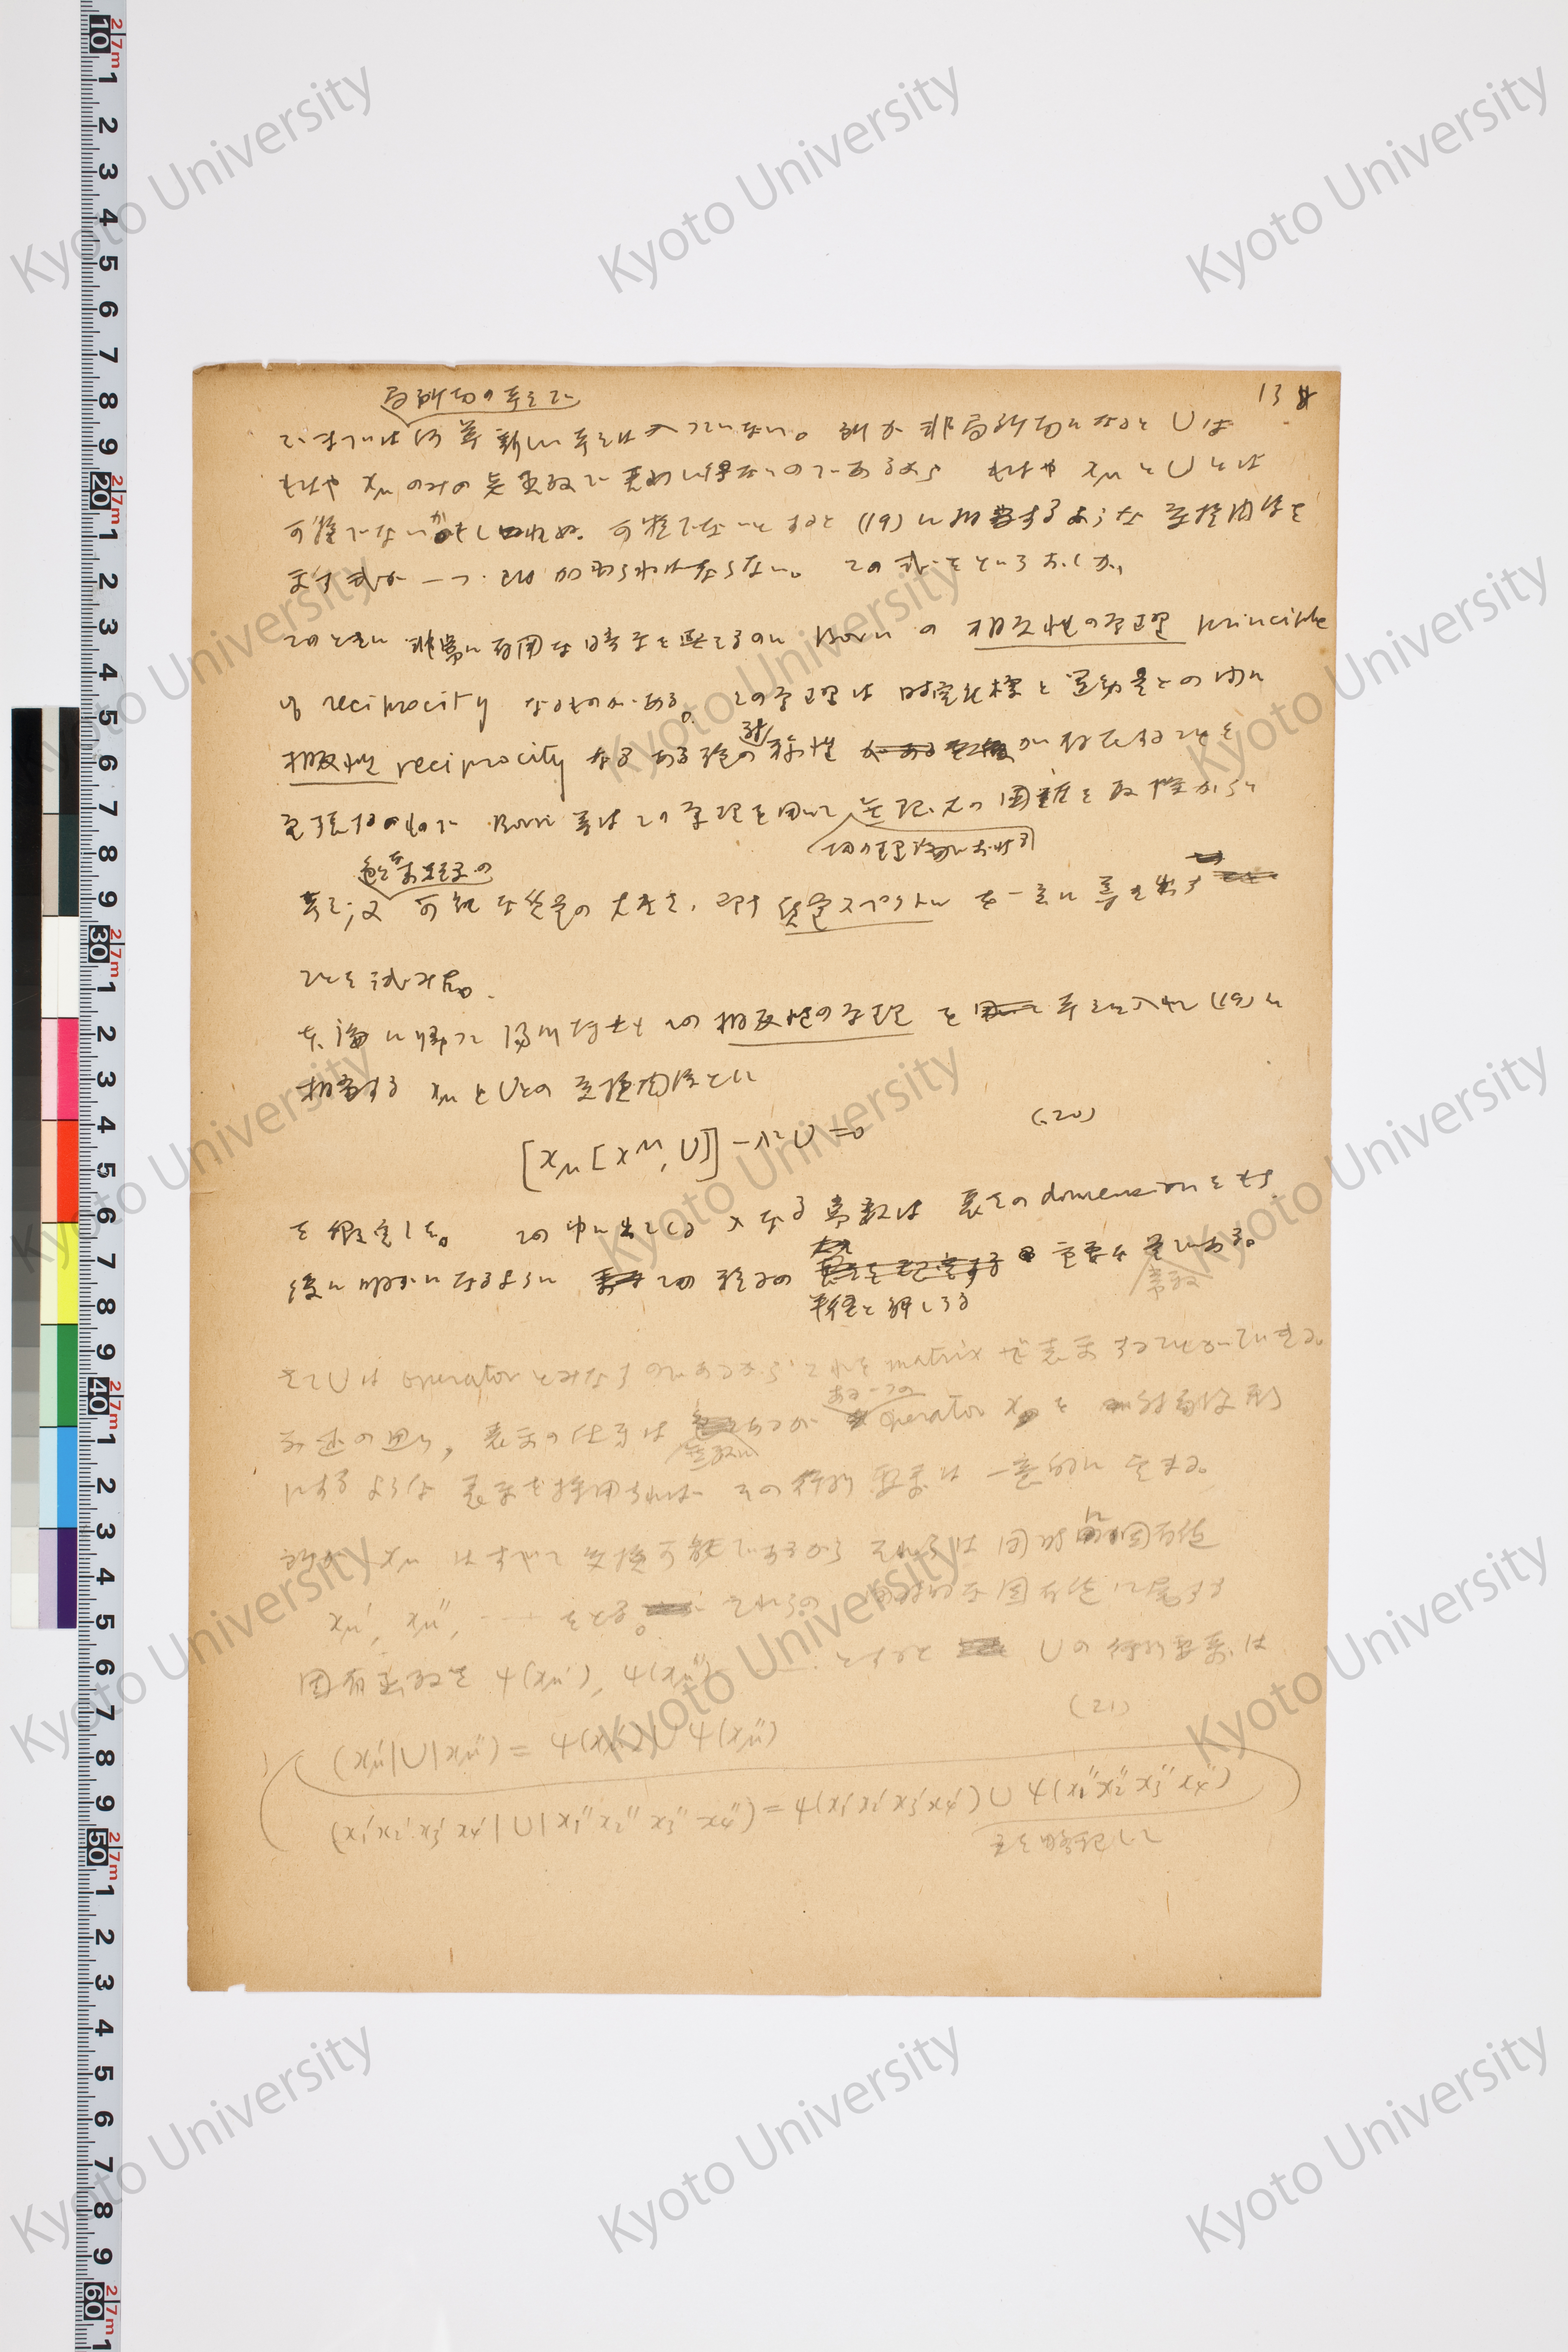 13
局所的の考えで
では何等新しい考えは入っていない。所が非局所的になると U は
もはや xμ のみの函数で表わし得ないのであるから もはや xμ と U とは
可換でないかもしれぬ。可換でないとすると (19) に相当するような交換関係を
表す式が一つ 加わらねばならない。この式を
このときに非常に有用な暗示を与えるのに Born の 相反性の原理 principle
of reciprocity なるものがある。この原理は時空座標と運動量との間に
相反性 reciprocity なる ある種の対称性 が存在することを
主張するもので Born 等はこの原理を用いて 無限大の困難を
場の理論における
素粒子の
考え、又 可能な質量の大きさ、即ち 質量スペクトル を一意に導き出す
ことを試みた。
本論に帰って 湯川博士は この 相反性の原理 を 考えに入れ (19) に
相当する xμ と U との 交換関係として
[xμ [x^μ, U]] − λ² U = 0 (20)
を仮定した。この中に出てくる λ なる常数は 長さの dimension をもち
後に明かになるように この粒子の 重要な量である。
半径と解しうる
常数
さて U は operator とみなすのであるから これを matrix で表示することができる。
前述の通り、表示の仕方は 無数にあるが ある一つの operator xμ を 対角線形
にするような表示を採用すれば その行列要素は一意的に定まる。
所が xμ はすべて交換可能であるから それらは同時に固有値
xμ′, xμ″, ‥‥ をとる。それらの 同時的な固有値に属する
固有函数を ψ(xμ′), ψ(xμ″) ‥‥ とすると U の行列要素は
(xμ′|U|xμ″) = ψ(xμ′) U ψ(xμ″) (21)
(x₁′x₂′x₃′x₄′|U|x₁″x₂″x₃″x₄″) = ψ(x₁′x₂′x₃′x₄′) U ψ(x₁″x₂″x₃″x₄″)
を略記して
Kyoto University